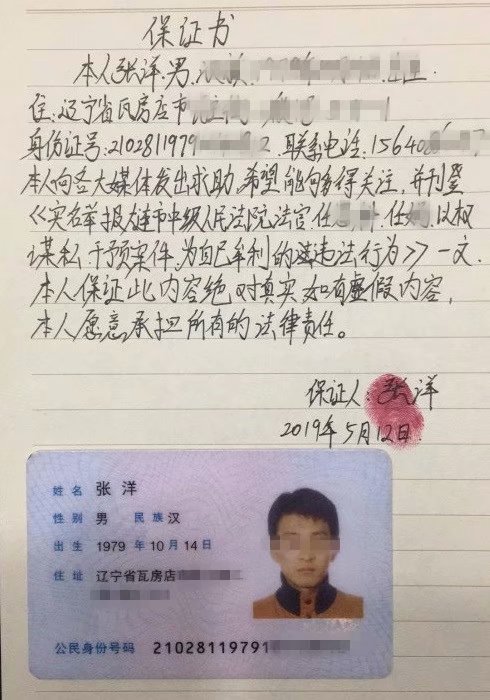 保证书
本人张洋.男.
住:辽宁省瓦房店市
身份证号:2102811979 2. 联系电话:15640 7
本人向各大媒体发出求助.希望能够得关注.并刊登
《实名举报大连市中级人民法院法官任 任 以权
谋私.干预案件.为自己牟利的违违法行为》一文.
本人保证此内容绝对真实如有虚假内容,
本人愿意承担所有的法律责任。
保证人:张洋
2019年5月12日.
姓名 张洋
性别 男 民族 汉
出生 1979 年 10 月 14 日
住址 辽宁省瓦房店
公民身份号码 21028119791